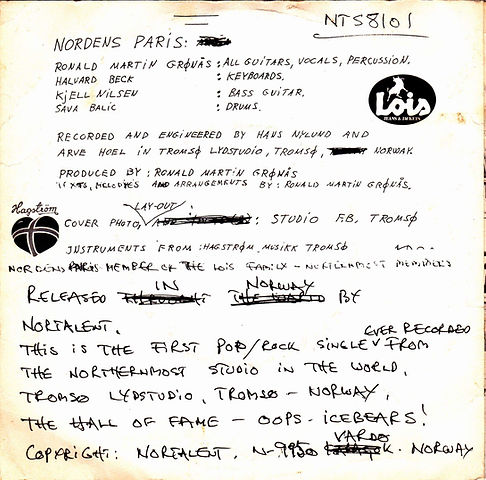 NTS8101
NORDENS PARIS:
RONALD MARTIN GRØNÅS : ALL GUITARS, VOCALS, PERCUSSION.
HALVARD BECK : KEYBOARDS.
KJELL NILSEN : BASS GUITAR.
SAVA BALIC : DRUMS.
Lois
JEANS & JACKETS
RECORDED AND ENGINEERED BY HANS NYLUND AND
ARVE HOEL IN TROMSØ LYDSTUDIO, TROMSØ, NORWAY
PRODUCED BY : RONALD MARTIN GRØNÅS
TEXTS, MELODIES AND ARRANGEMENTS BY : RONALD MARTIN GRØNÅS.
Hagström
LAY-OUT
COVER PHOTO, : STUDIO F.B. TROMSØ
INSTRUMENTS FROM : HAGSTRØM MUSIKK TROMSØ
NORDENS PARIS MEMBER OF THE LOIS FAMILY - NORTHERNMOST MEMBERS
IN NORWAY
RELEASED BY
NORTALENT.
EVER RECORDED
THIS IS THE FIRST POP/ROCK SINGLE FROM
THE NORTHERNMOST STUDIO IN THE WORLD,
TROMSØ LYDSTUDIO, TROMSØ - NORWAY,
THE HALL OF FAME - OOPS - ICEBEARS!
VARDØ
COPYRIGHT: NORTALENT, N-9950 . NORWAY